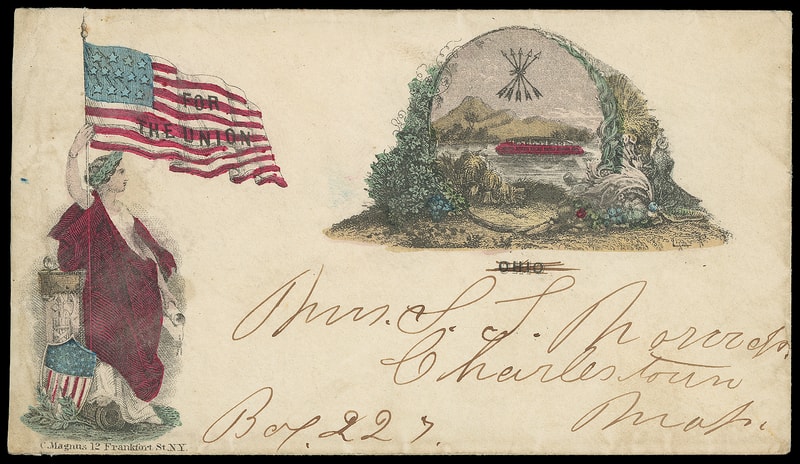 FOR
THE UNION
OHIO
Mrs. S. S.
Charlestown
Mass.
Box. 227.
C. Magnus 12 Frankfort St. N.Y.